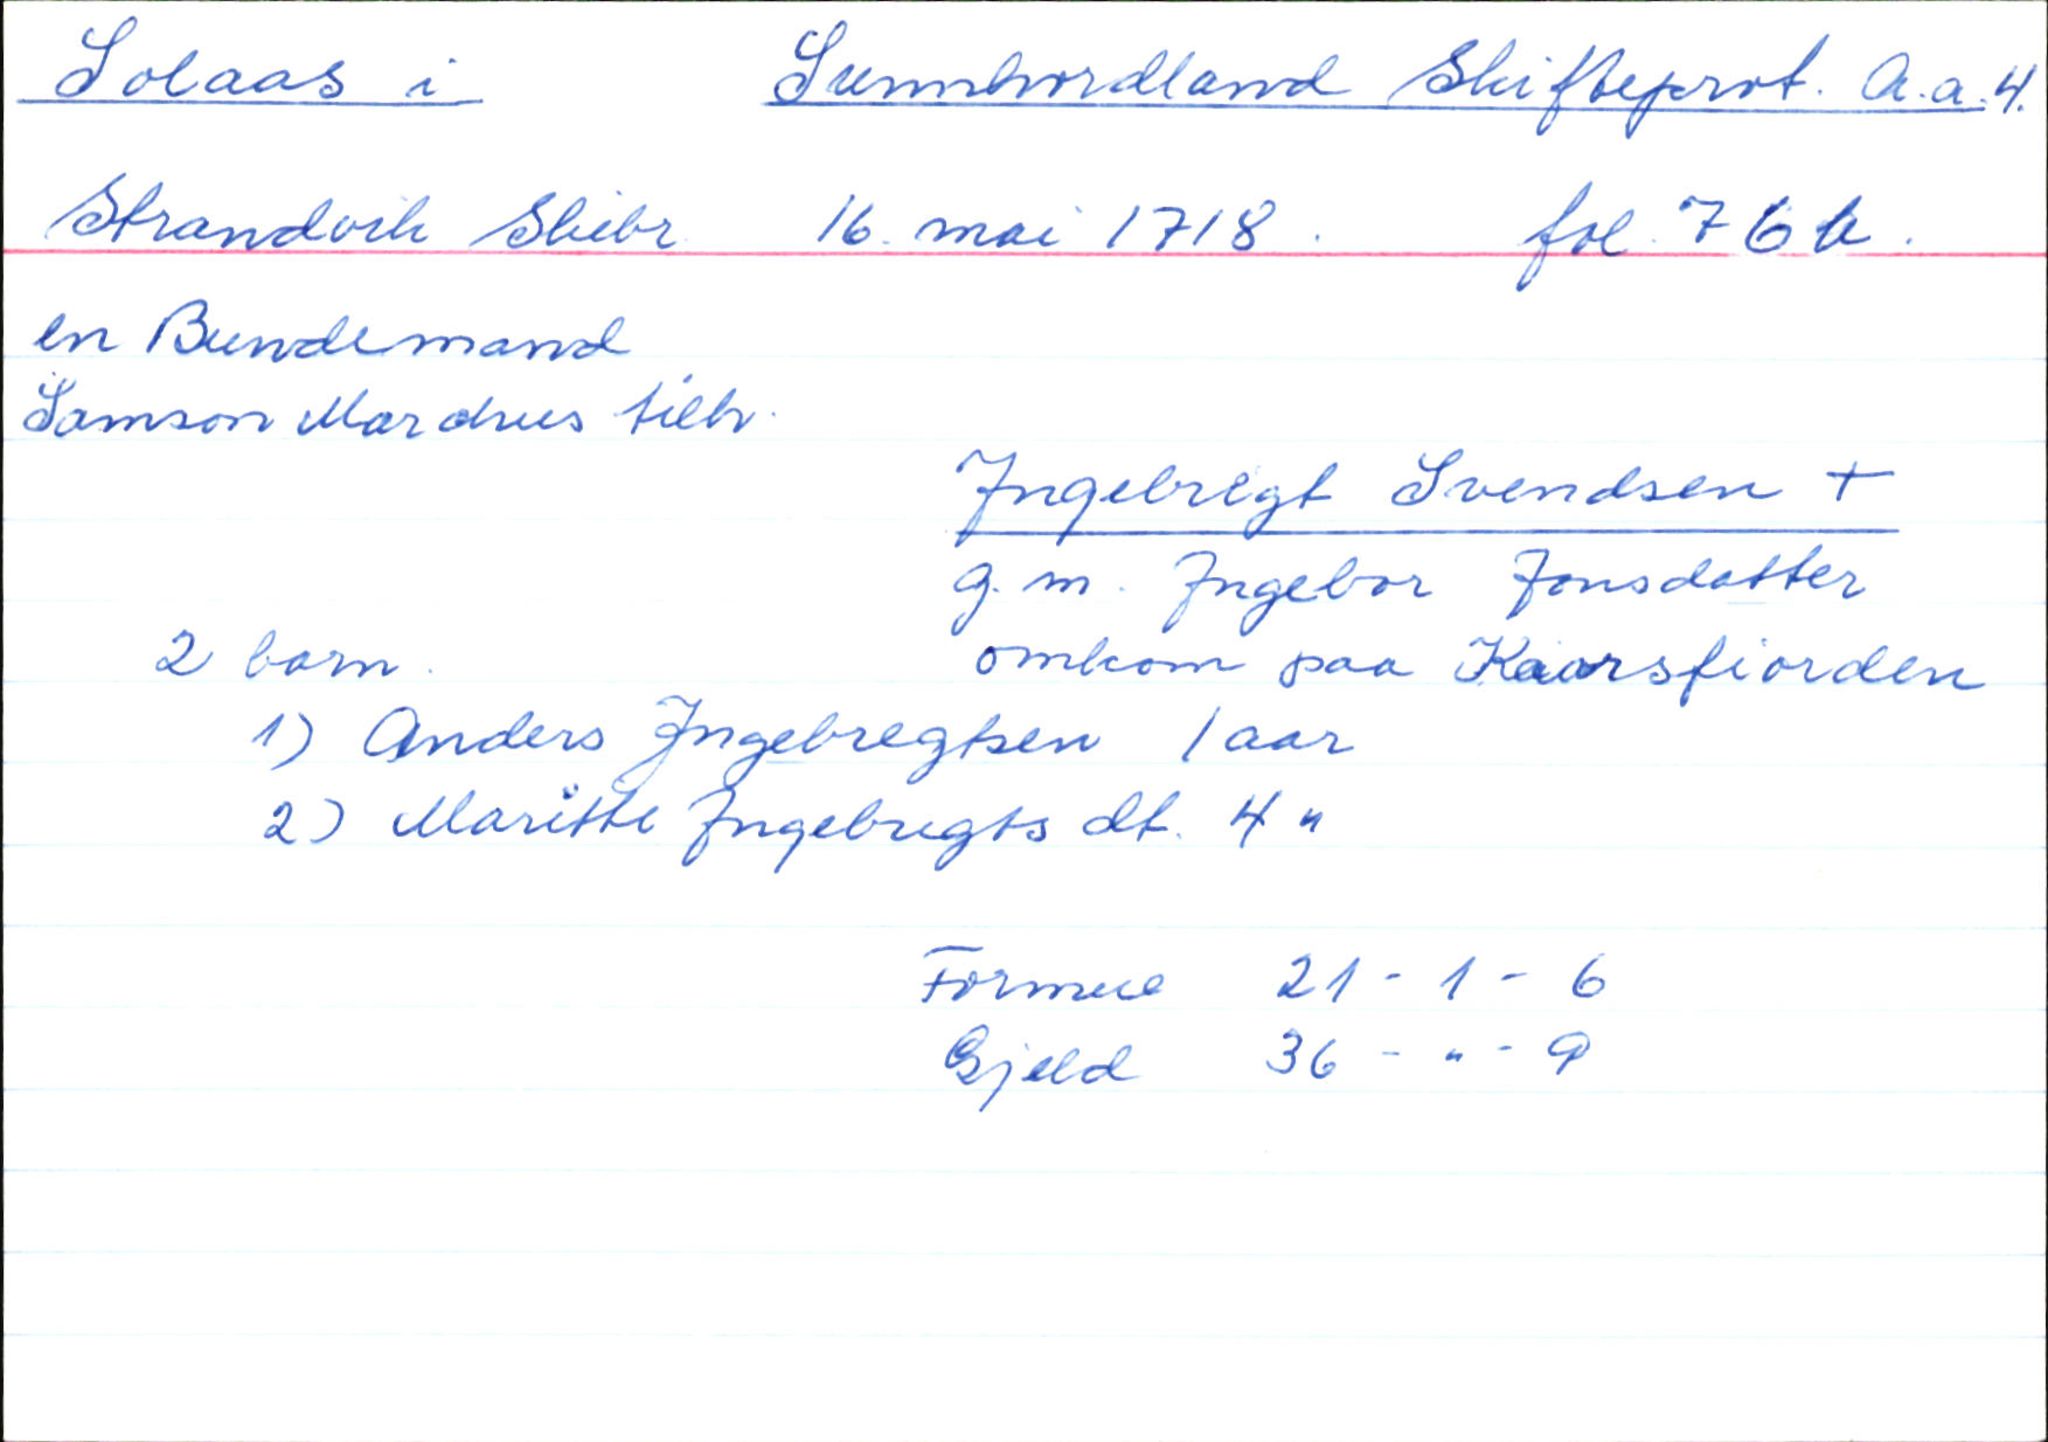 Solaas i Sunnhordland Skifteprot. A.a.4.
Strandvik Skibr. 16. mai 1718. fol. 76b.
en Bundemand
Samson Mardhus tilh.
Ingebrigt Svendsen +
g. m. Ingebor Jonsdatter
2 barn. omkom paa Kaarsfiorden
1) Anders Ingebregtsen 1 aar
2) Maritte Ingebregts dt. 4 "
Formue 21 - 1 - 6
Gjeld 36 - " - 9